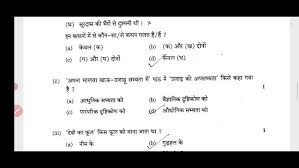 (घ) सूरदास की भैरों से दुश्मनी थी ।
इन कथनों में से कौन-सा/से कथन गलत है/हैं ?
(a) केवल (क) (b) (क) और (ख) दोनों
(c) (ग) और (घ) दोनों (d) केवल (घ)
(ii) 'अपना मालवा खाऊ-उजाड़ू सभ्यता में' पाठ में 'उजाड़ की अपसभ्यता' किसे कहा गया 1
है ?
(a) आधुनिक सभ्यता को (b) वैज्ञानिक दृष्टिकोण को
(c) पारंपरिक दृष्टिकोण को (d) औद्योगिक सभ्यता को
(iii) 'देवी का फूल' किस फूल को माना जाता था ? 1
(a) नीम के (b) गुड़हल के